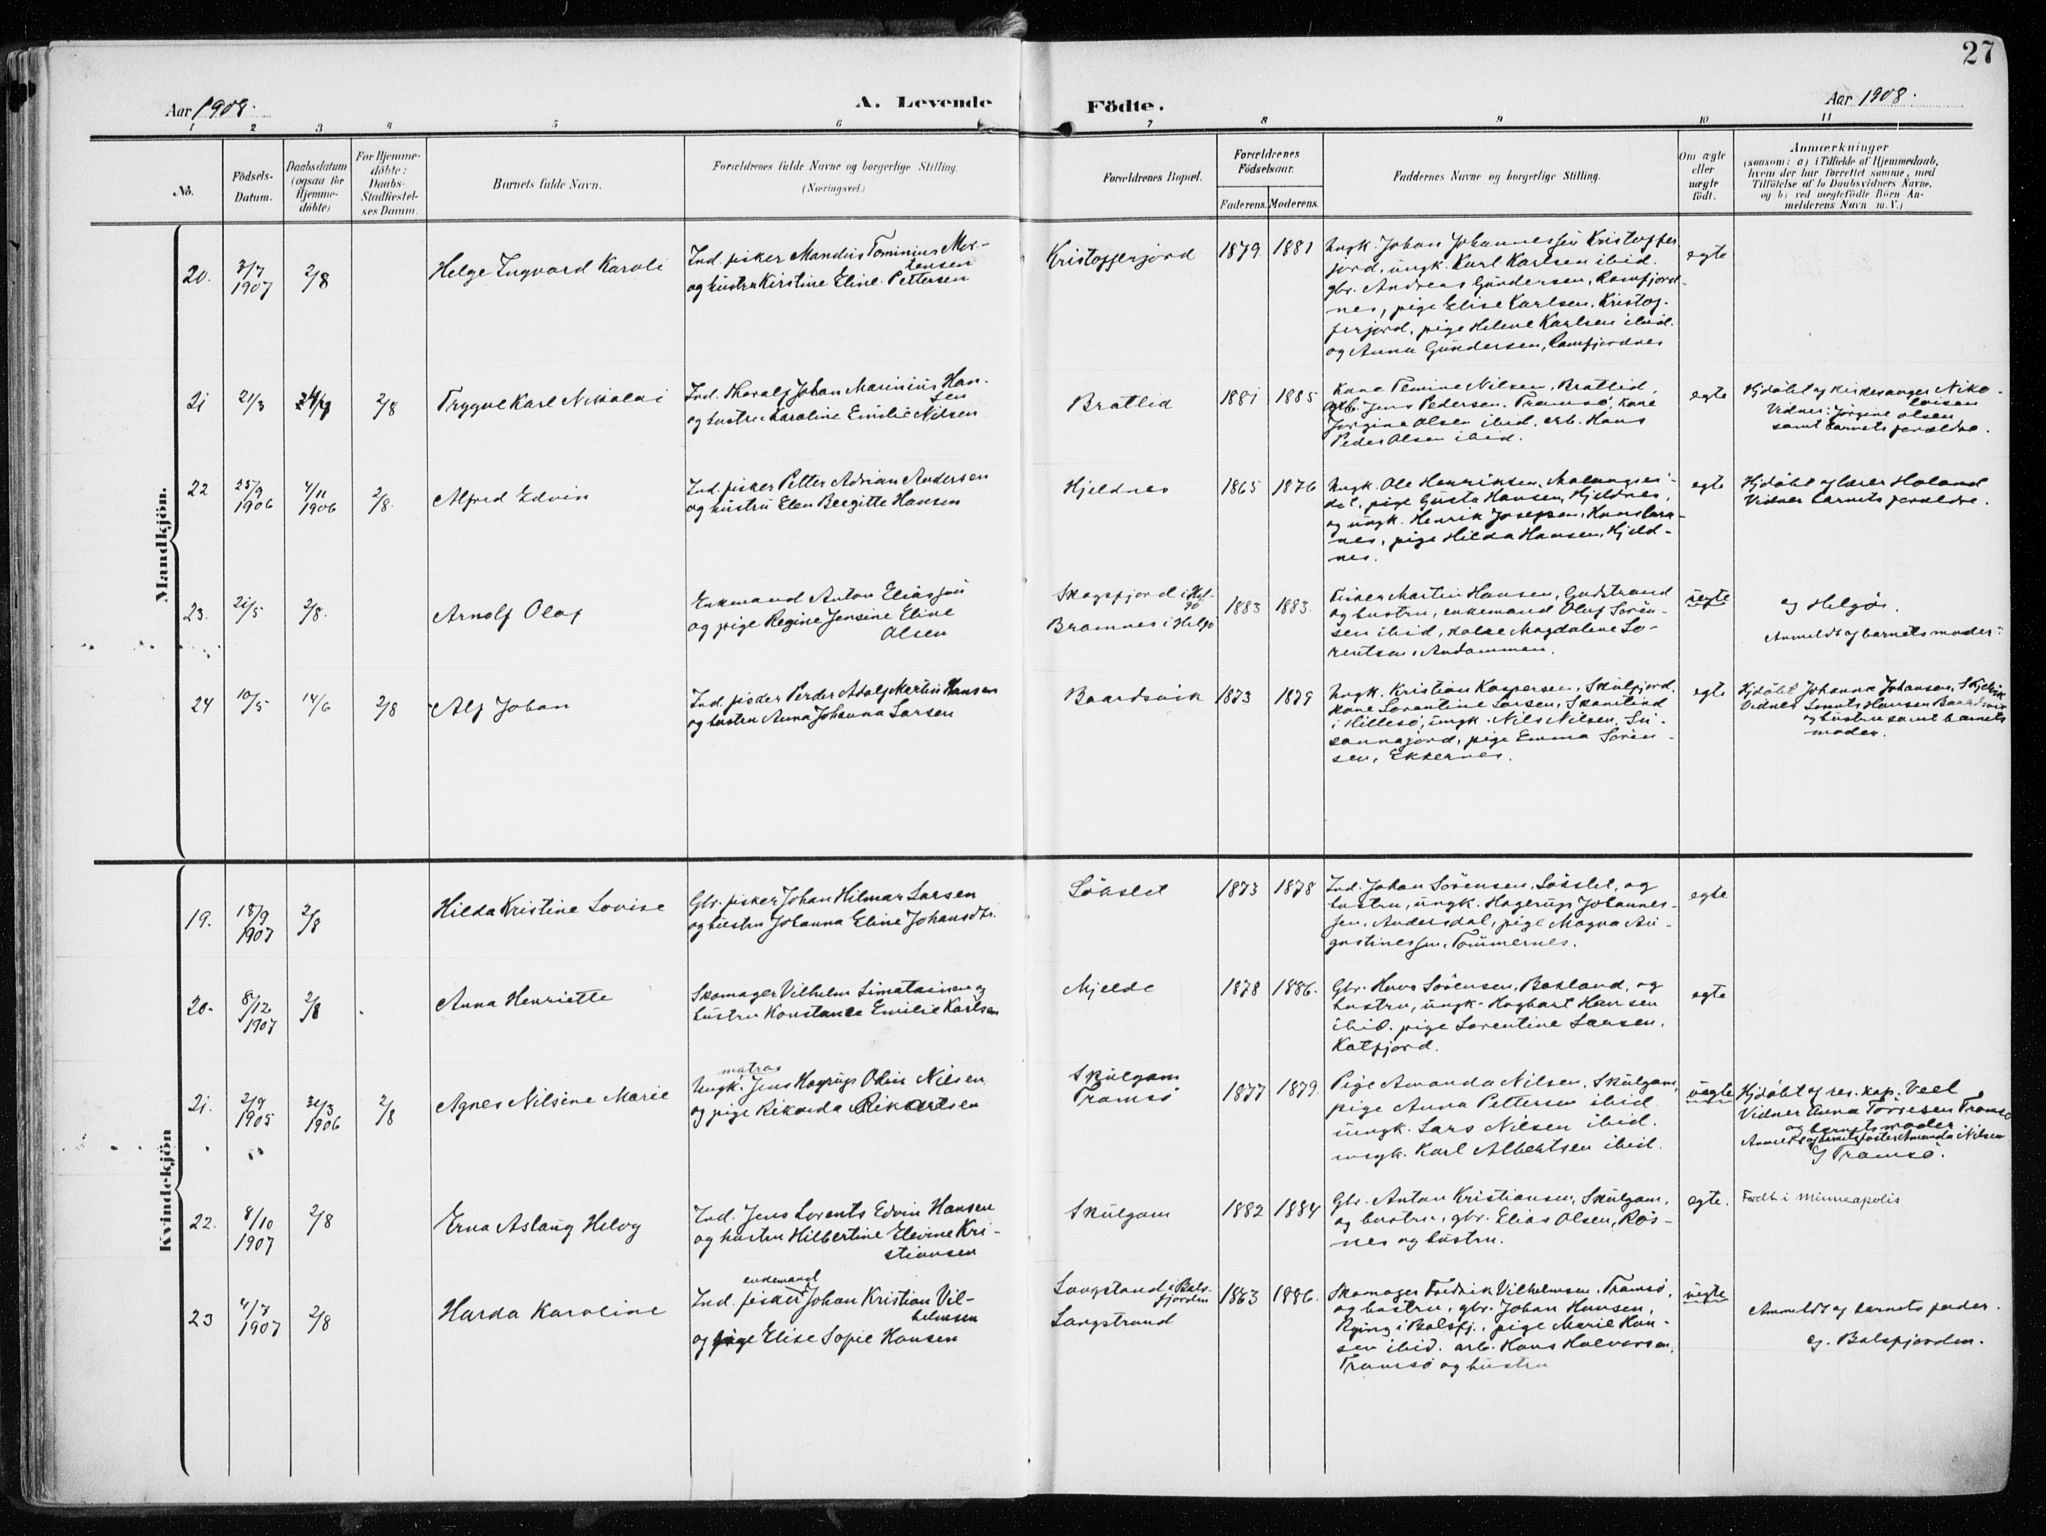 27
Aar 1908.
A. Levende
Födte.
Aar 1908.
1 2 3 4 5 6 7 8 9 10 11
No.
Födsels-
Datum.
Daabsdatum
(ogsaa for
Hjemme-
döbte)
For Hjemme-
döbte:
Daabs-
Stadfæstel-
ses Datum.
Barnets fulde Navn.
Forældrenes fulde Navne og borgerlige Stilling.
(Næringsvei)
Forældrenes Bopæl.
Forældrenes
Födselsaar.
Faderens. Moderens.
Faddernes Navne og borgerlige Stilling.
Om ægte
eller
uægte
födt.
Anmærkninger
(saasom: a) i Tilfælde af Hjemmedaab,
hvem der har forrettet samme, med
Tilföielse af to Daabsvidners Navne,
og b) ved uægtefödte Börn An-
melderens Navn m. V.)
Mandkjön.
20.
3/7
1907
2/8
Helge Ingvard Karoli
Ind. fisker Mandus Tominius Mor-
tensen
og hustru Kirstine Eline Pettersen
Kristofferjord
1879 1881
Ungk. Johan Johannessen Kristoffer
jord, ungk. Karl Karlsen ibid.
gbr. Andreas Gundersen, Ramfjord-
nes, pige Elise Karlsen, Kristof-
ferjord, pige Helene Karlsen ibid.
og Anna Gundersen, Ramfjordnes
egte
21
21/3
2/8
Trygve Karl Nikolai
Ind. Thoralf Johan Marinius Han-
sen
og hustru Karoline Emilie Nilsen
Bratlid
1881 1885
Kone Nilsen, Bratlid,
arb. Jens Pedersen, Tromsö, kone
Jørgine Olsen ibid, arb. Hans
Peder Olsen ibid.
egte
Hjdøbt af kirkesanger Niko-
laisen
Vidner: Jørgine Olsen
samt barnets forældre.
22
25/9
1906
4/11
1906
2/8.
Alfred Edvin
Ind. fisker Petter Adrian Andersen
og hustru Elen Bergitte Hansen
Hjeldnes
1865 1876
Ungk. Ole Henriksen, Malangsei-
det, pige Gusta Hansen, Hjeldnes,
og ungk. Henrik Josefsen,
nes, pige Hilda Hansen, Hjeld-
nes.
egte
Hjdøbt af lærer Haland
Vidner barnets forældre.
23.
21/5
2/8.
Arnolf Olaf
Enkemand Anton Eliassen
og pige Regine Jensine Eline
Olsen
Skogsfjord i Hel-
gö
Bramnes i Helgö
1883 1883.
Fisker Martin Hansen, Grøtstrand
og hustru, enkemand Oluf Sören-
sen ibid, Magdalene Lo-
rentsen, Andammen.
uegte
af Helgö.
Anmeldt af barnets moder.
24
10/5
14/6
2/8
Alf Johan
Ind. fisker Peder Adolf Martin Hansen
og hustru Anna Johanna Larsen
Baardsvik
1873 1879
Ungk. Kristian Kaspersen, Skulfjord,
kone Lorentine Larsen, Skamtind
i Hillesö, ungk. Nils Nilsen, Su-
sannajord, pige Emma Sören-
sen, Ekkernes.
egte
Hjdøbt Johanna Johansen, Skjelvik
Vidner Lorents Hansen Baardsvik
og hustru samt barnets
moder.
Kvindekjön
19.
18/9
1907
2/8
Hilda Kristine Lovise
Gbr. fisker Johan Hilmar Larsen
og hustru Johanna Eline Johansdtr.
Löksled
1873 1878
Ind. Johan Sørensen, Löksled, og
hustru, ungk. Hagerup Johannes-
sen, Andersdal, pige Magna Au-
gustinessen, Tømmernes.
egte
20.
8/12
1907
2/8
Anna Henriette
Skomager Vilhelm Limatainen og
hustru Konstance Emilie Karlsen
Mjelde
1878 1886.
Gbr. Hans Sørensen, Bakland, og
hustru, ungk. Hagbart Hansen
ibid. pige Lorentine Larsen,
Katfjord.
egte
21.
2/9
1905
31/3
1906
2/8
Agnes Nilsine Marie
matros
Ungk. Jens Hagrup Odin Nilsen
og pige Rikarda Rikardsen
Skulgam
Tromsö
1877 1879.
Pige Amanda Nilsen, Skulgam,
pige Anna Pettersen ibid.
ungk. Lars Nilsen ibid.
ungk. Karl Albertsen ibid.
uegte
Hjdøbt af res. kap. Veel
Vidner Anna Torresen Tromsö
og barnets moder
Anmeldt af barnets faster Amanda Nilsen
af Tromsö.
22.
8/10
1907
2/8
Erna Aslaug Helvg
Ind. Jens Lorents Edvin Hansen
og hustru Hilbertine Elevine Kri-
stiansen
Skulgam
1882 1884
Gbr. Anton Kristiansen, Skulgam,
og hustru, gbr. Elias Olsen, Rös-
nes og hustru.
egte.
Født i Minneapolis
23
4/7
1907
2/8
Harda Karoline
enkemand
Ind. fisker Johan Kristian Vil-
helmsen
og pige Elise Sofie Hansen
Langstrand i Bals-
fjorden
Langstrand
1863 1886.
Skomager Fredrik Vilhelmsen, Tromsö,
og hustru, gbr. Johan Hansen,
i Balsfj., pige Marie Han-
sen ibid. arb. Hans Halvorsen,
Tromsö og hustru
uegte
Anmeldt af barnets fader.
af Balsfjorden.